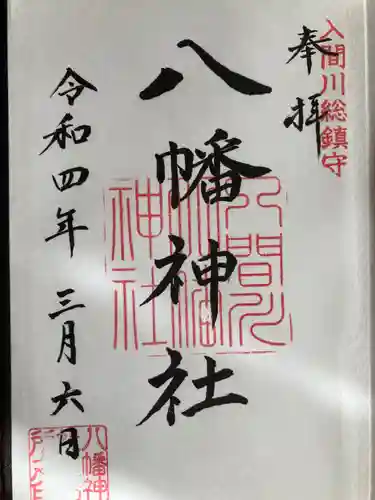 入間川総鎮守
奉拝
八幡神社
入間
神社
令和四年 三月六日
八幡神